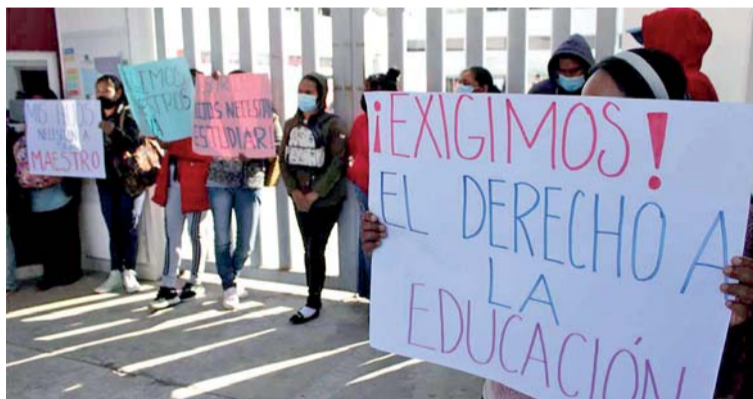 MIS HIJOS
NECESITAN A
SU
MAESTRO
NECESITAN
ESTUDIAR!
¡EXIGIMOS!
EL DERECHO A
LA
EDUCACIÓN